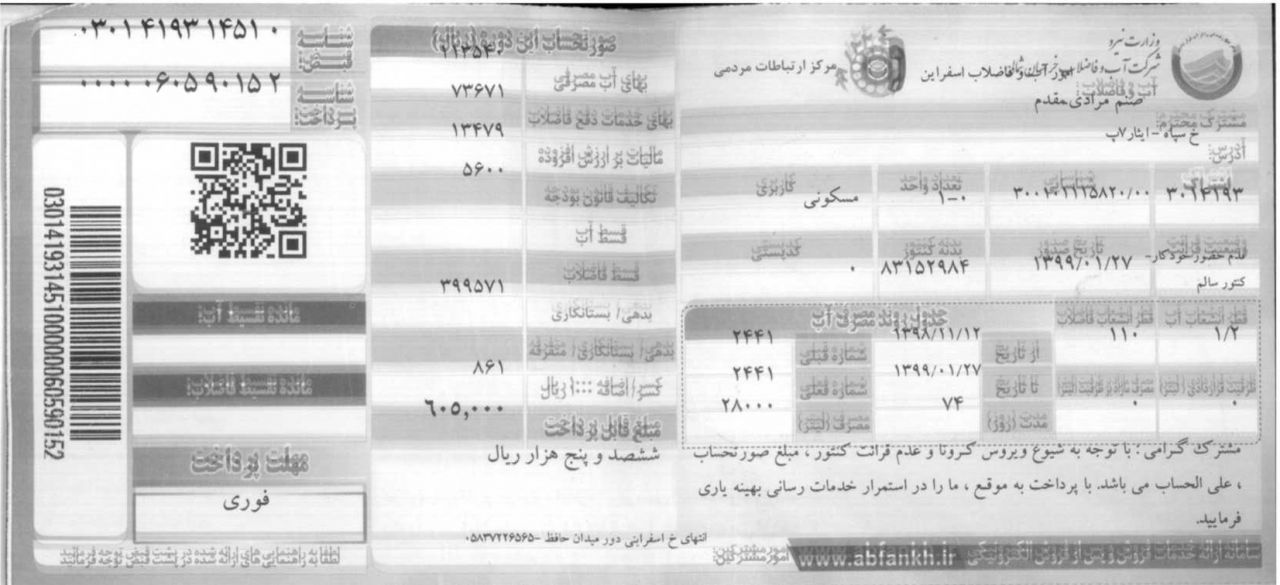 وزارت نیرو
شرکت آب و فاضلاب خراسان شمالی
امور آب و فاضلاب اسفراین
مرکز ارتباطات مردمی
صنم مرادی مقدم
مشترک محترم:
خ سپاه - ایثار۷پ
آدرس:
اشتراک
شناسایی
تعداد واحد
کاربری
۳۰۱۴۱۹۳
۱-۰
مسکونی
وضعیت قرائت
تاریخ صدور
بدنه کنتور
کدپستی
عدم حضور خودکار-
کنتور سالم
۱۳۹۹/۰۱/۲۷
۸۳۱۵۲۹۸۴
۰
جدول روند مصرف آب
قطر انشعاب آب
قطر انشعاب فاضلاب
۱/۲
۱۱۰
از تاریخ
۱۳۹۸/۱۱/۱۲
شماره قبلی
۲۴۴۱
ظرفیت قراردادی (لیتر)
مصرف مازاد بر ظرفیت (لیتر)
تا تاریخ
۱۳۹۹/۰۱/۲۷
شماره فعلی
۲۴۴۱
۰
۰
مدت (روز)
۷۴
مصرف (لیتر)
۲۸۰۰۰
مشترک گرامی : با توجه به شیوع ویروس کرونا و عدم قرائت کنتور ، مبلغ صورتحساب
، علی الحساب می باشد. با پرداخت به موقع ، ما را در استمرار خدمات رسانی بهینه یاری
فرمایید.
سامانه ارائه خدمات فروش و پس از فروش الکترونیکی www.abfankh.ir
امور مشترکین:
انتهای خ اسفراینی دور میدان حافظ -۰۵۸۳۷۲۲۶۵۶۵
صورتحساب این دوره (ریال)
بهای آب مصرفی
۲۱۳۵۴۰
بهای خدمات دفع فاضلاب
۷۳۶۷۱
مالیات بر ارزش افزوده
۱۳۴۷۹
تکالیف قانون بودجه
۵۶۰۰
قسط آب
قسط فاضلاب
بدهی/ بستانکاری
۳۹۹۵۷۱
بدهی/ بستانکاری/ متفرقه
کسر/ اضافه ۱۰۰۰ ریال
۸۶۱
مبلغ قابل پرداخت
۶۰۵,۰۰۰
ششصد و پنج هزار ریال
شناسه قبض:
۰۳۰۱۴۱۹۳۱۴۵۱۰
شناسه پرداخت:
۰۰۰۰۰۰۶۰۵۹۰۱۵۲
03014193145100000060590152
مانده تقسیط آب:
مانده تقسیط فاضلاب:
مهلت پرداخت
فوری
لطفا به راهنمایی های ارائه شده در پشت قبض توجه فرمائید